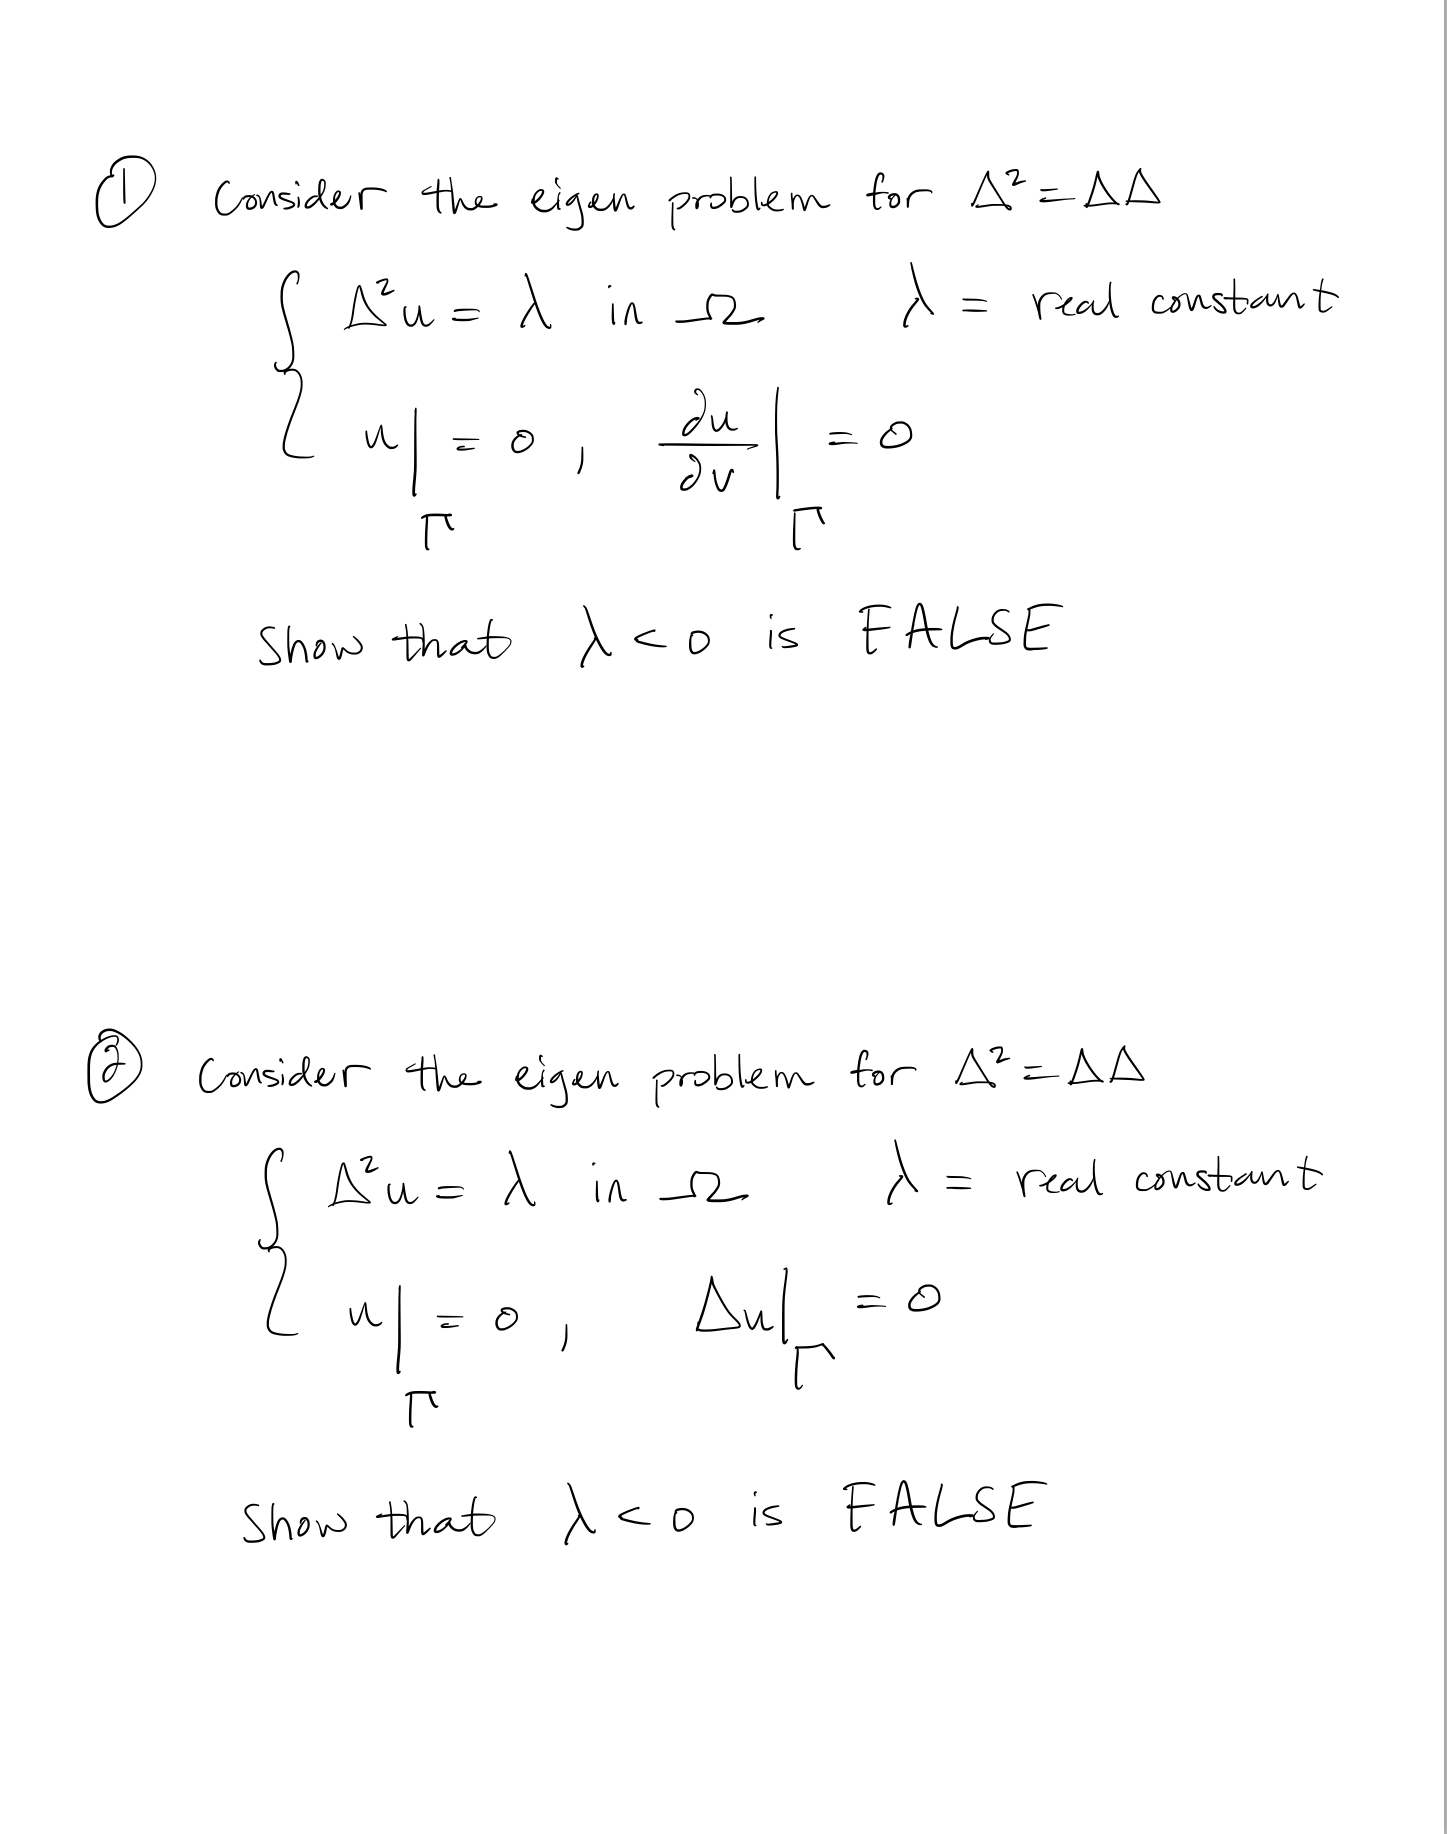 ① Consider the eigen problem for Δ² = ΔΔ
Δ²u = λ in Ω λ = real constant
u|_Γ = 0 , ∂u/∂ν|_Γ = 0
Show that λ < 0 is FALSE
② Consider the eigen problem for Δ² = ΔΔ
Δ²u = λ in Ω λ = real constant
u|_Γ = 0 , Δu|_Γ = 0
Show that λ < 0 is FALSE